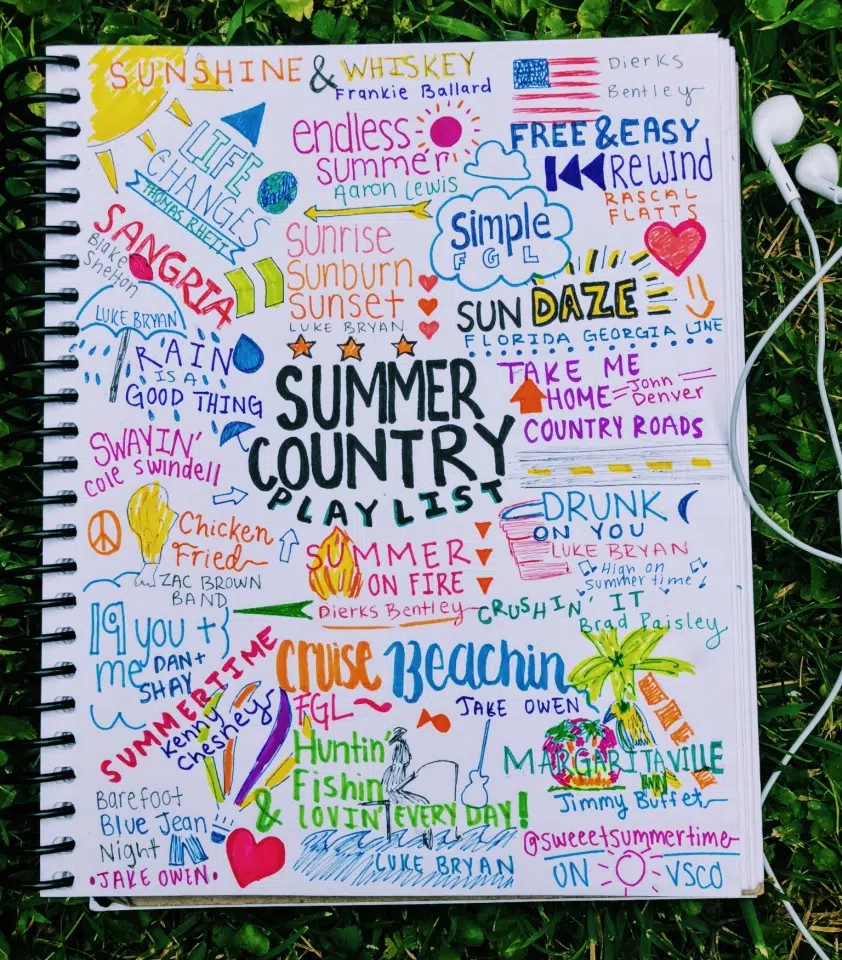 SUNSHINE & WHISKEY
Frankie Ballard
Dierks
Bentley
FREE & EASY
endless
summer
Aaron Lewis
LIFE
CHANGES
THOMAS RHETT
REWIND
RASCAL
FLATTS
SANGRIA
Blake
Shelton
Sunrise
Sunburn
Sunset
LUKE BRYAN
Simple
FGL
SUN DAZE
FLORIDA GEORGIA LINE
LUKE BRYAN
RAIN
IS A
GOOD THING
SUMMER
COUNTRY
PLAYLIST
TAKE ME
HOME
John
Denver
COUNTRY ROADS
SWAYIN'
cole swindell
Chicken
Fried
ZAC BROWN
BAND
SUMMER
ON FIRE
Dierks Bentley
DRUNK
ON YOU
LUKE BRYAN
High on
summertime
CRUSHIN' IT
Brad Paisley
19 you +
me
DAN +
SHAY
SUMMERTIME
Kenny
Chesney
Cruise
FGL
Beachin
JAKE OWEN
Huntin'
Fishin
& LOVIN' EVERY DAY!
LUKE BRYAN
MARGARITAVILLE
Jimmy Buffet
Barefoot
Blue Jean
Night
•JAKE OWEN•
@sweeetsummertime
ON VSCO